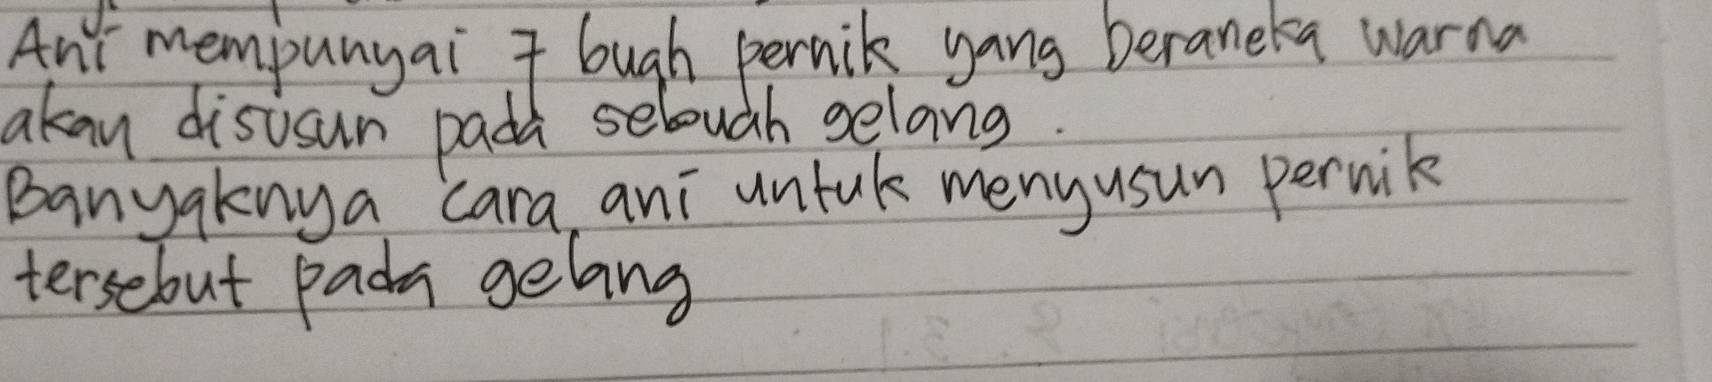 Ani mempunyai 7 buah pernik yang beraneka warna
akan disusun pada sebuah gelang.
Banyaknya cara ani untuk menyusun pernik
tersebut pada gelang